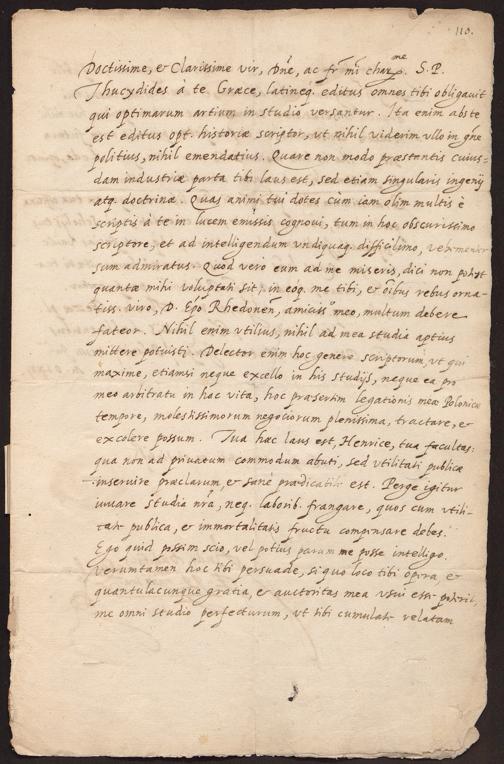 110.
Doctissime, & Clarissime vir, Dñe, ac fr̃ mi char.me S.P.
Thucydides à te Græce, latineq. editus omnes tibi obligauit
qui optimarum artium in studio versantur. Ita enim abs te
est editus opt. historiæ scriptor, vt nihil viderim vllo in gñe
politius, nihil emendatius. Quare non modo præstantis cuius-
dam industriæ parta tibi laus est, sed etiam singularis ingenij
atq. doctrinæ. Quas animi tui dotes cùm iam olim multis è
scriptis à te in lucem emissis cognoui, tum in hoc obscurissimo
scriptore, et ad intelligendum vndiquaq. difficilimo, vehementer
sum admiratus. Quòd vero eum ad me miseris, dici non potest
quantæ mihi voluptati sit; in eoq. me tibi, & oĩbus rebus orna-
tiss. viro, D. Epõ Rhedonen, amiciss.o meo, multum debere
fateor. Nihil enim vtilius, nihil ad mea studia aptius
mittere potuisti. Delector enim hoc genere scriptorum, vt qui
maxime, etiamsi neque excello in his studijs, neque ea pro
meo arbitratu in hac vita, hoc præsertim legationis meæ Polonicæ
tempore, molestissimorum negociorum plenissima, tractare, &
excolere possum. Tua hæc laus est, Henrice, tua facultas:
qua non ad priuatum commodum abuti, sed vtilitati publicæ
inseruire præclarum, & sane prædicabile est. Perge igitur
iuuare studia nr̃a, neq. laborib. frangare, quos cum vtili-
tate publica, & immortalitatis fructu compensare debes.
Ego quid possim scio, vel potius parum me posse intelligo.
Verumtamen hoc tibi persuade, si quo loco tibi opera, &
quantulacunque gratia, & auctoritas mea vsui esse poterit,
me omni studio perfecturum, vt tibi cumulate relatam